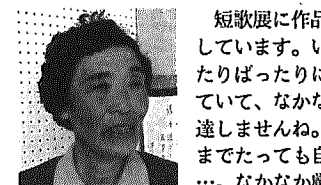 短歌展に作品
しています。い
たりばったりに
ていて、なかな
達しませんね。
までたっても自
…。なかなか厳